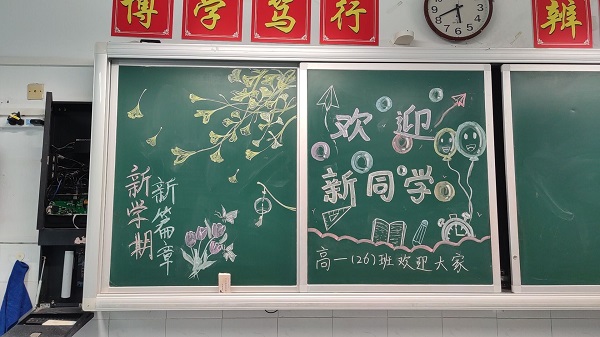 博 学 笃 行 辨
欢迎
新同学
新学期
新篇章
高一(26)班欢迎大家